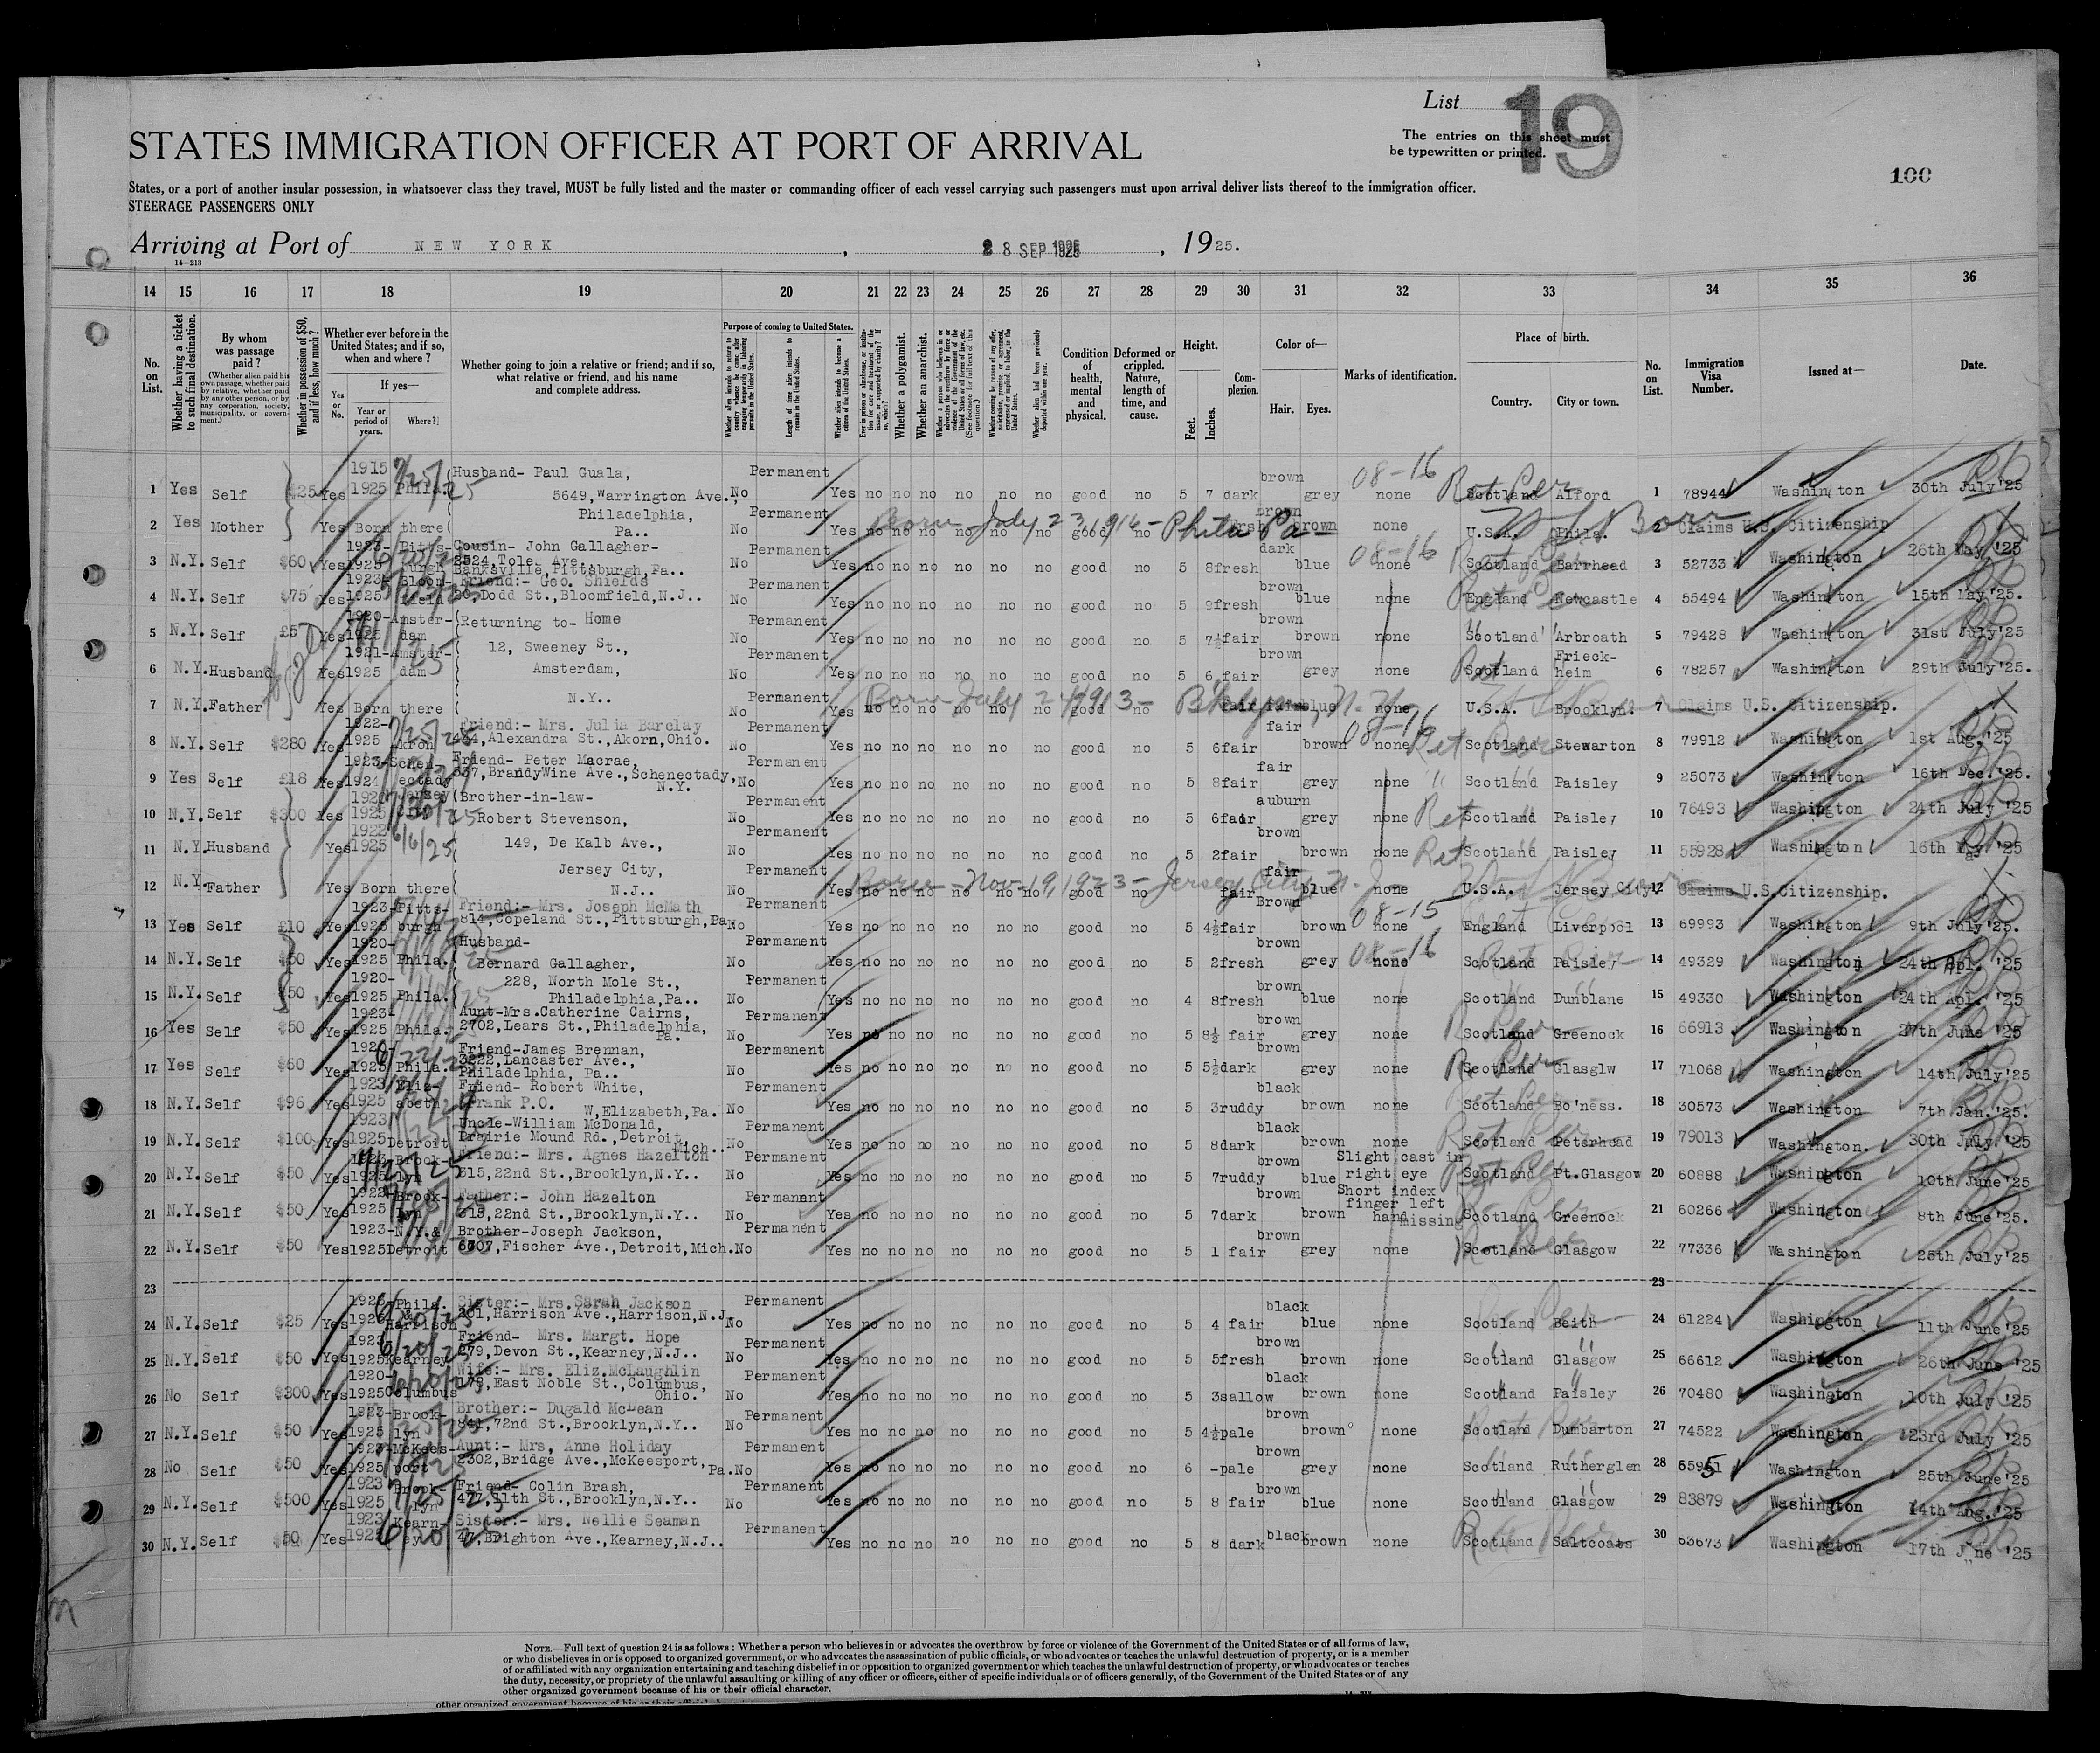 List 19
STATES IMMIGRATION OFFICER AT PORT OF ARRIVAL
The entries on this sheet must
be typewritten or printed.
100
States, or a port of another insular possession, in whatsoever class they travel, MUST be fully listed and the master or commanding officer of each vessel carrying such passengers must upon arrival deliver lists thereof to the immigration officer.
STEERAGE PASSENGERS ONLY
Arriving at Port of NEW YORK, 28 SEP 1925, 1925.
14—213
14 15 16 17 18 19 20 21 22 23 24 25 26 27 28 29 30 31 32 33 34 35 36
No. on List.
Whether having a ticket to such final destination.
By whom was passage paid?
(Whether alien paid his own passage, whether paid by relative, whether paid by any other person, or by any corporation, society, municipality, or government.)
Whether in possession of $50, and if less, how much?
Whether ever before in the United States; and if so, when and where?
Yes or No.
If yes—
Year or period of years.
Where?
Whether going to join a relative or friend; and if so, what relative or friend, and his name and complete address.
Purpose of coming to United States.
Length of time alien intends to remain in the United States.
Whether alien intends to become a citizen of the United States.
Whether a polygamist.
Whether an anarchist.
Condition of health, mental and physical.
Deformed or crippled. Nature, length of time, and cause.
Height.
Feet. Inches.
Complexion.
Color of—
Hair. Eyes.
Marks of identification.
Place of birth.
Country. City or town.
No. on List.
Immigration Visa Number.
Issued at—
Date.
1 Yes Self $25 Yes 1915 1925 Phila. Husband- Paul Guala, 5649, Warrington Ave., Permanent No Yes no no no no no no good no 5 7 dark brown grey none Scotland Alford 1 78944 Washington 30th July '25
2 Yes Mother Yes Born there Philadelphia, Pa.. Permanent No Yes no no no no no no good no brown brown none U.S.A. Phila. 2 Claims U.S. Citizenship
Born - July 23, 1916 - Phila Pa -
3 N.Y. Self $60 Yes 1923- 1925 Pittsburgh Cousin- John Gallagher- 2524, Tole. Ave., Banksville, Pittsburgh, Pa.. Permanent No Yes no no no no no no good no 5 8 fresh dark blue none Scotland Barrhead 3 52733 Washington 26th May '25
4 N.Y. Self $75 Yes 1923- 1925 Bloomfield Friend:- Geo. Shields 20, Dodd St., Bloomfield, N.J.. Permanent No Yes no no no no no no good no 5 9 fresh brown blue none England Newcastle 4 55494 Washington 15th May '25.
5 N.Y. Self £5 Yes 1920- 1925 Amsterdam Returning to- Home Permanent No Yes no no no no no no good no 5 7½ fair brown brown none Scotland Arbroath 5 79428 Washington 31st July '25
6 N.Y. Husband Yes 1921- 1925 Amsterdam 12, Sweeney St., Amsterdam, Permanent No Yes no no no no no no good no 5 6 fair brown grey none Scotland Frieckheim 6 78257 Washington 29th July '25.
7 N.Y. Father Yes Born there N.Y.. Permanent No Yes no no no no no no good no fair blue none U.S.A. Brooklyn. 7 Claims U.S. Citizenship.
8 N.Y. Self $280 Yes 1922- 1925 Akron Friend:- Mrs. Julia Barclay 484, Alexandra St., Akorn, Ohio. Permanent No Yes no no no no no no good no 5 6 fair fair brown none Scotland Stewarton 8 79912 Washington 1st Aug. '25
9 Yes Self £18 Yes 1923- 1924 Schenectady Friend- Peter Macrae, 637, BrandyWine Ave., Schenectady, N.Y. Permanent No Yes no no no no no no good no 5 8 fair fair grey none Scotland Paisley 9 25073 Washington 16th Dec. '25.
10 N.Y. Self $300 Yes 1925 Jersey City Brother-in-law- Robert Stevenson, Permanent No Yes no no no no no no good no 5 6 fair auburn grey none Scotland Paisley 10 76493 Washington 24th July '25
11 N.Y. Husband Yes 1922 1925 149, De Kalb Ave., Permanent No Yes no no no no no no good no 5 2 fair brown brown none Scotland Paisley 11 55928 Washington 16th May '25
12 N.Y. Father Yes Born there Jersey City, N.J.. Permanent No Yes no no no no no no good no fair fair blue none U.S.A. Jersey City. 12 Claims U.S. Citizenship.
Born - Nov. 19, 1923 - Jersey City, N.J.
13 Yes Self £10 Yes 1923- 1925 Pittsburgh Friend:- Mrs. Joseph McMath 814, Copeland St., Pittsburgh, Pa. Permanent No Yes no no no no no no good no 5 4½ fair Brown brown none England Liverpool 13 69993 Washington 9th July '25.
14 N.Y. Self $50 Yes 1920- 1925 Phila. Husband- Bernard Gallagher, Permanent No Yes no no no no no no good no 5 2 fresh brown grey none Scotland Paisley 14 49329 Washington 24th Apl. '25
15 N.Y. Self $50 Yes 1920- 1925 Phila. 228, North Mole St., Philadelphia, Pa.. Permanent No Yes no no no no no no good no 4 8 fresh brown blue none Scotland Dunblane 15 49330 Washington 24th Apl. '25
16 Yes Self $50 Yes 1923 1925 Phila. Aunt-Mrs. Catherine Cairns, 2702, Lears St., Philadelphia, Pa. Permanent No Yes no no no no no no good no 5 8½ fair brown grey none Scotland Greenock 16 66913 Washington 27th June '25
17 Yes Self $60 Yes 1920- 1925 Phila. Friend-James Brennan, 3222, Lancaster Ave., Philadelphia, Pa.. Permanent No Yes no no no no no no good no 5 5½ dark brown grey none Scotland Glasglw 17 71068 Washington 14th July '25
18 N.Y. Self $96 Yes 1923 1925 Elizabeth Friend- Robert White, Frank P.O. W, Elizabeth, Pa. Permanent No Yes no no no no no no good no 5 3 ruddy black brown none Scotland Bo'ness. 18 30573 Washington 7th Jan. '25.
19 N.Y. Self $100 Yes 1923 1925 Detroit Uncle-William McDonald, Prairie Mound Rd., Detroit, Mich.. Permanent No Yes no no no no no no good no 5 8 dark black brown none Scotland Peterhead 19 79013 Washington. 30th July. '25
20 N.Y. Self $50 Yes 1923- 1925 Brooklyn Friend:- Mrs. Agnes Hazelton 615, 22nd St., Brooklyn, N.Y.. Permanent No Yes no no no no no no good no 5 7 ruddy brown blue Slight cast in right eye Scotland Pt. Glasgow 20 60888 Washington 10th June '25
21 N.Y. Self $50 Yes 1922- 1925 Brooklyn Father:- John Hazelton 615, 22nd St., Brooklyn, N.Y.. Permanent No Yes no no no no no no good no 5 7 dark brown brown Short index finger left hand missing Scotland Greenock 21 60266 Washington 8th June '25.
22 N.Y. Self $50 Yes 1923- 1925 N.Y.& Detroit Brother-Joseph Jackson, 6707, Fischer Ave., Detroit, Mich. Permanent No Yes no no no no no no good no 5 1 fair brown grey none Scotland Glasgow 22 77336 Washington 25th July '25
23 23
24 N.Y. Self $25 Yes 1923 1925 Phila. & Harrison Sister:- Mrs. Sarah Jackson 301, Harrison Ave., Harrison, N.J. Permanent No Yes no no no no no no good no 5 4 fair black blue none Scotland Beith 24 61224 Washington 11th June '25
25 N.Y. Self $50 Yes 1923 1925 Kearney Friend- Mrs. Margt. Hope 279, Devon St., Kearney, N.J.. Permanent No Yes no no no no no no good no 5 5 fresh brown brown none Scotland Glasgow 25 66612 Washington 26th June '25
26 No Self $300 Yes 1920- 1925 Columbus Wife:- Mrs. Eliz. McLaughlin 178, East Noble St., Columbus, Ohio. Permanent No Yes no no no no no no good no 5 3 sallow black brown none Scotland Paisley 26 70480 Washington 10th July '25
27 N.Y. Self $50 Yes 1923- 1925 Brooklyn Brother:- Dugald McLean 841, 72nd St., Brooklyn, N.Y.. Permanent No Yes no no no no no no good no 5 4½ pale brown brown none Scotland Dumbarton 27 74522 Washington 23rd July '25
28 No Self $50 Yes 1923- 1925 McKeesport Aunt:- Mrs, Anne Holiday 2302, Bridge Ave., McKeesport, Pa. Permanent No Yes no no no no no no good no 6 - pale brown grey none Scotland Rutherglen 28 Washington 25th June '25
29 N.Y. Self $500 Yes 1923 1925 Brooklyn Friend- Colin Brash, 477, 11th St., Brooklyn, N.Y.. Permanent No Yes no no no no no no good no 5 8 fair brown blue none Scotland Glasgow 29 83879 Washington 14th Aug. '25
30 N.Y. Self $50 Yes 1923 1925 Kearney Sister:- Mrs. Nellie Seaman 47, Brighton Ave., Kearney, N.J.. Permanent Yes no no no no no no good no 5 8 dark black brown none Scotland Saltcoats 30 63673 Washington 17th June '25
NOTE.—Full text of question 24 is as follows: Whether a person who believes in or advocates the overthrow by force or violence of the Government of the United States or of all forms of law,
or who disbelieves in or is opposed to organized government, or who advocates the assassination of public officials, or who advocates or teaches the unlawful destruction of property, or is a member
of or affiliated with any organization entertaining and teaching disbelief in or opposition to organized government or which teaches the unlawful destruction of property, or who advocates or teaches
the duty, necessity, or propriety of the unlawful assaulting or killing of any officer or officers, either of specific individuals or of officers generally, of the Government of the United States or of any
other organized government because of his or their official character.